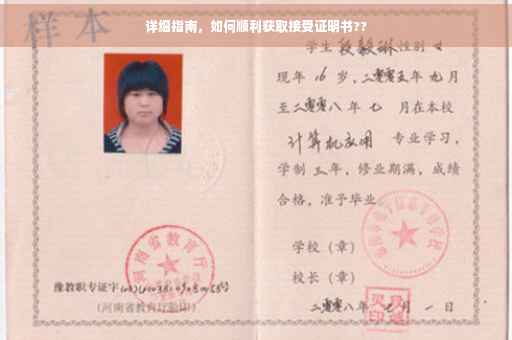 详细指南，如何顺利获取接受证明书??
样本
学生 段毅琳 性别 女
现年 16 岁，二零零五年 九 月
至二零零八年 七 月在本校
计算机应用 专业学习，
学制 三 年，修业期满，成绩
合格，准予毕业
学校（章）
校长（章）
二零零八年 月 一 日
河南省教育厅
豫教职专证字
（河南省教育厅验印）